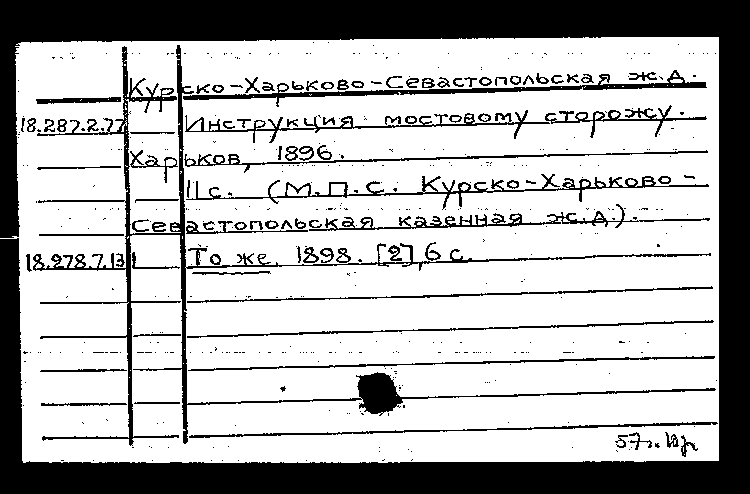 Курско-Харьково-Севастопольская ж.д.
18.287.2.77 Инструкция мостовому сторожу.
Харьков, 1896.
11 с. (М.П.С. Курско-Харьково-
Севастопольская казенная ж.д.).
18.278.7.131 То же. 1898. [2], 6 с.
57 г.